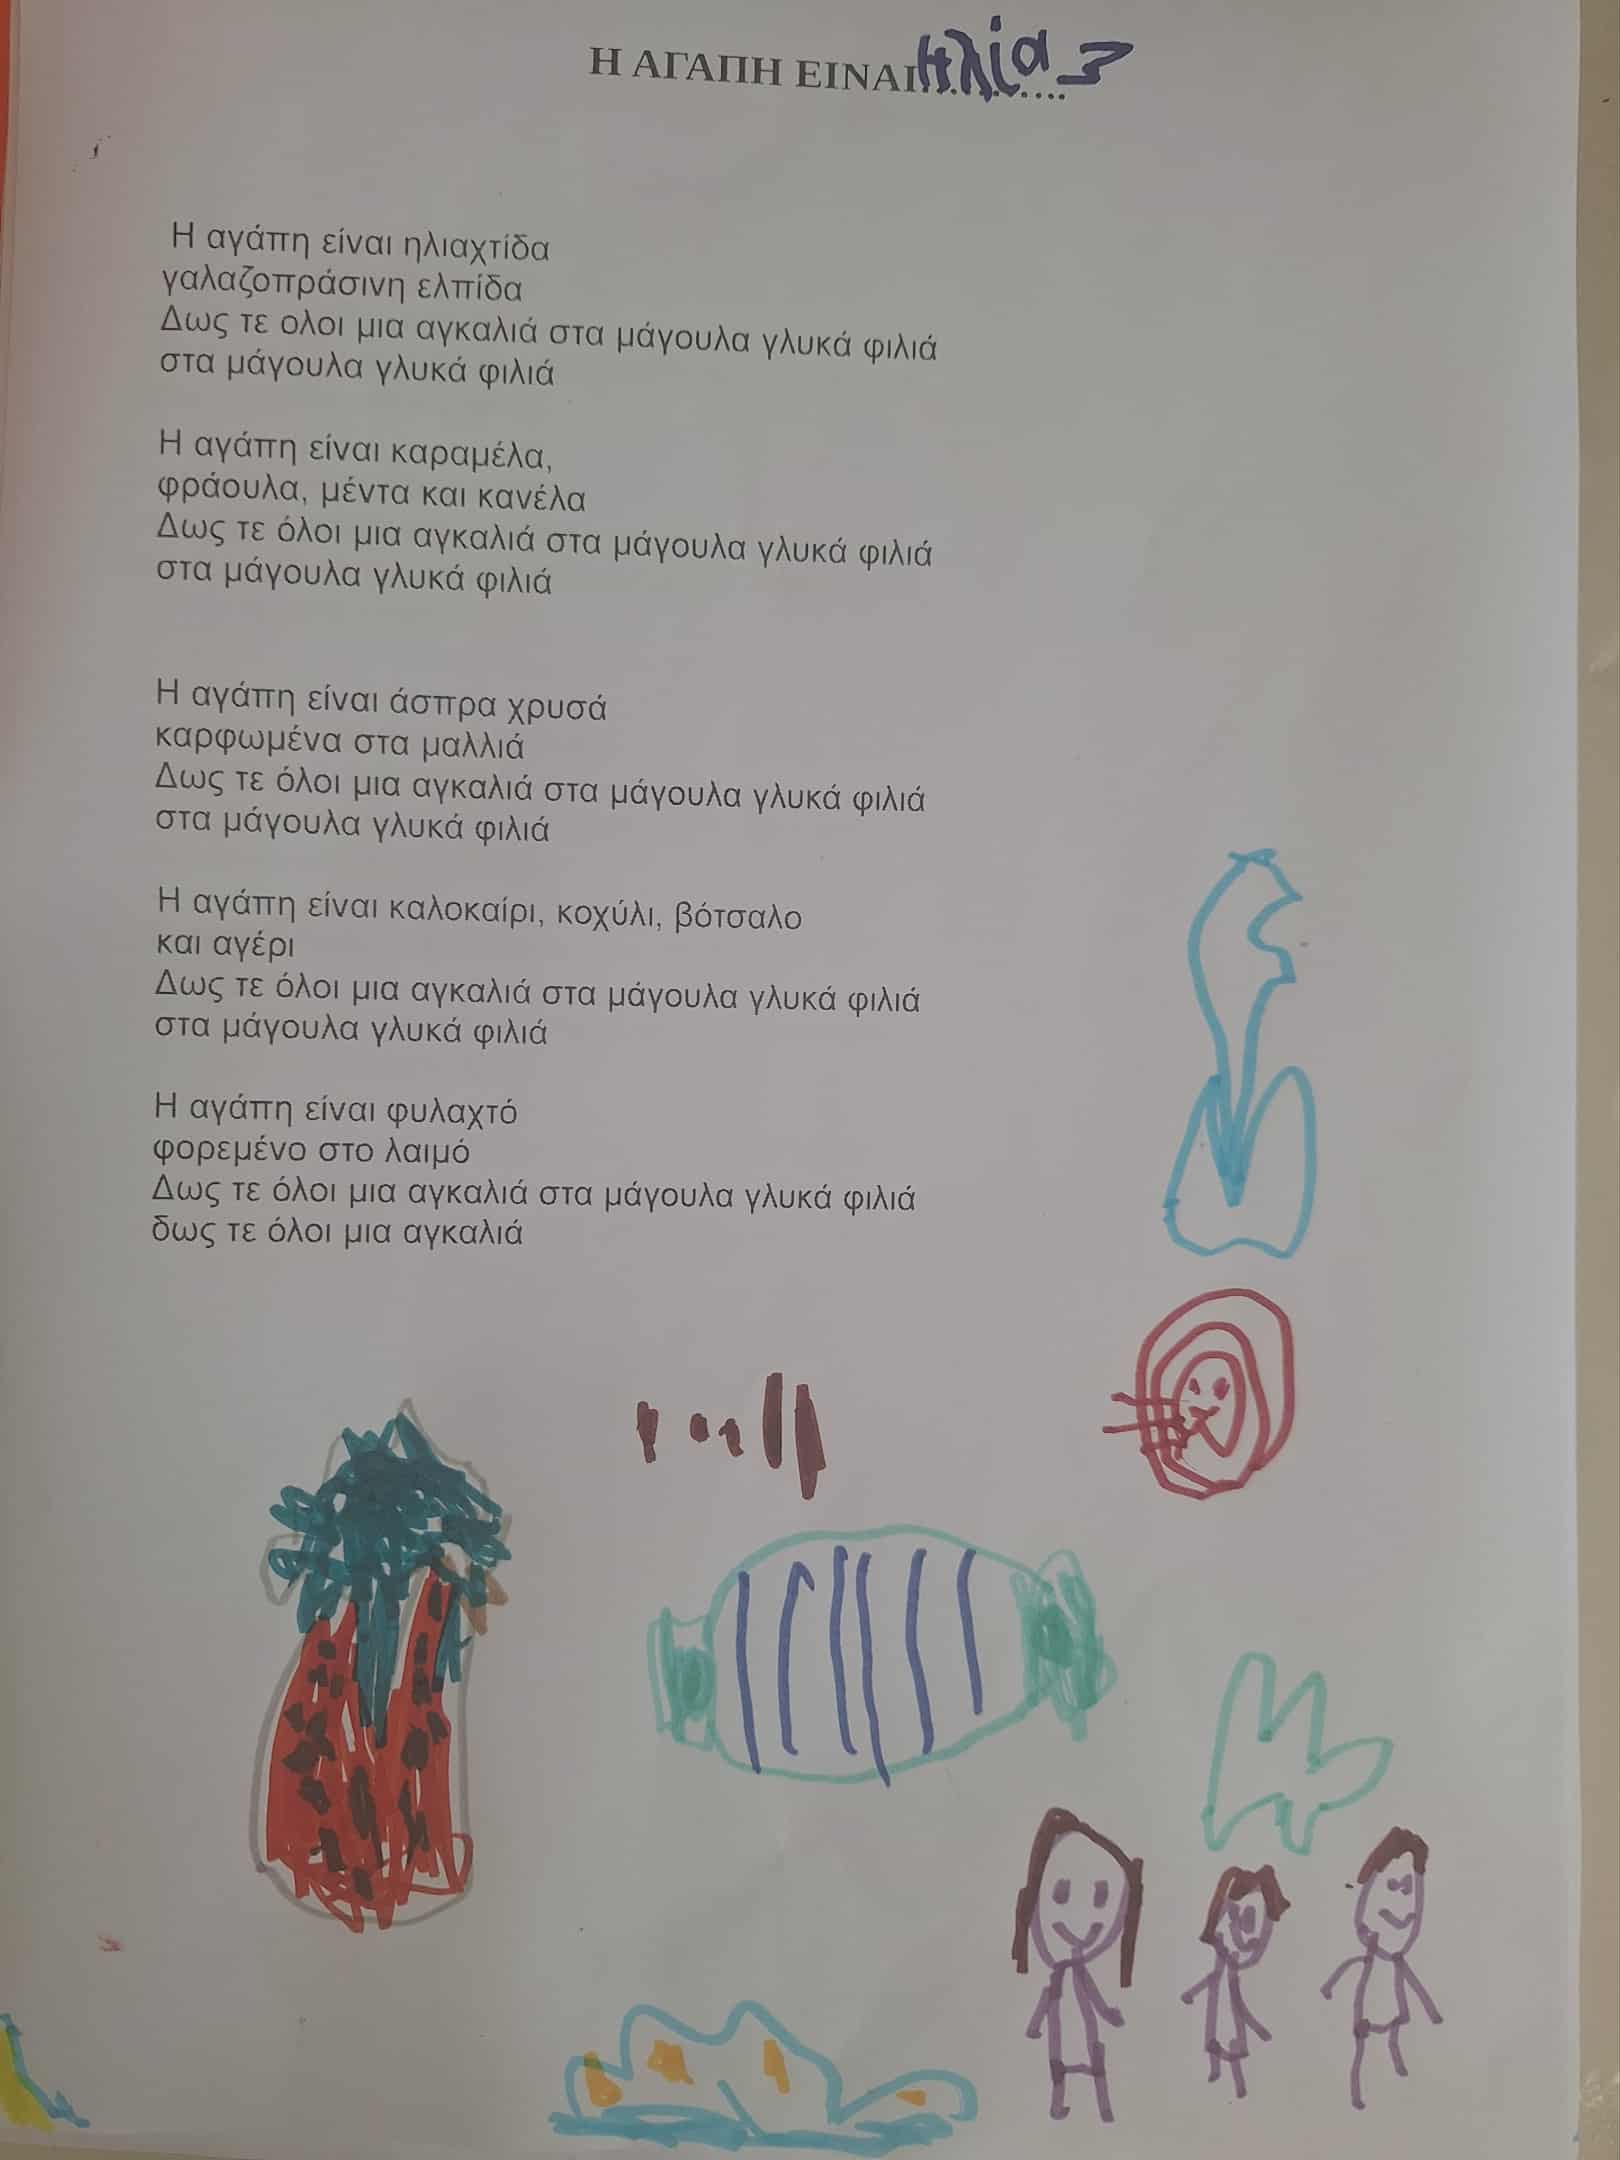 Η ΑΓΑΠΗ ΕΙΝΑΙ........
Ηλίας
Η αγάπη είναι ηλιαχτίδα
γαλαζοπράσινη ελπίδα
Δως τε ολοι μια αγκαλιά στα μάγουλα γλυκά φιλιά
στα μάγουλα γλυκά φιλιά
Η αγάπη είναι καραμέλα,
φράουλα, μέντα και κανέλα
Δως τε όλοι μια αγκαλιά στα μάγουλα γλυκά φιλιά
στα μάγουλα γλυκά φιλιά
Η αγάπη είναι άσπρα χρυσά
καρφωμένα στα μαλλιά
Δως τε όλοι μια αγκαλιά στα μάγουλα γλυκά φιλιά
στα μάγουλα γλυκά φιλιά
Η αγάπη είναι καλοκαίρι, κοχύλι, βότσαλο
και αγέρι
Δως τε όλοι μια αγκαλιά στα μάγουλα γλυκά φιλιά
στα μάγουλα γλυκά φιλιά
Η αγάπη είναι φυλαχτό
φορεμένο στο λαιμό
Δως τε όλοι μια αγκαλιά στα μάγουλα γλυκά φιλιά
δως τε όλοι μια αγκαλιά